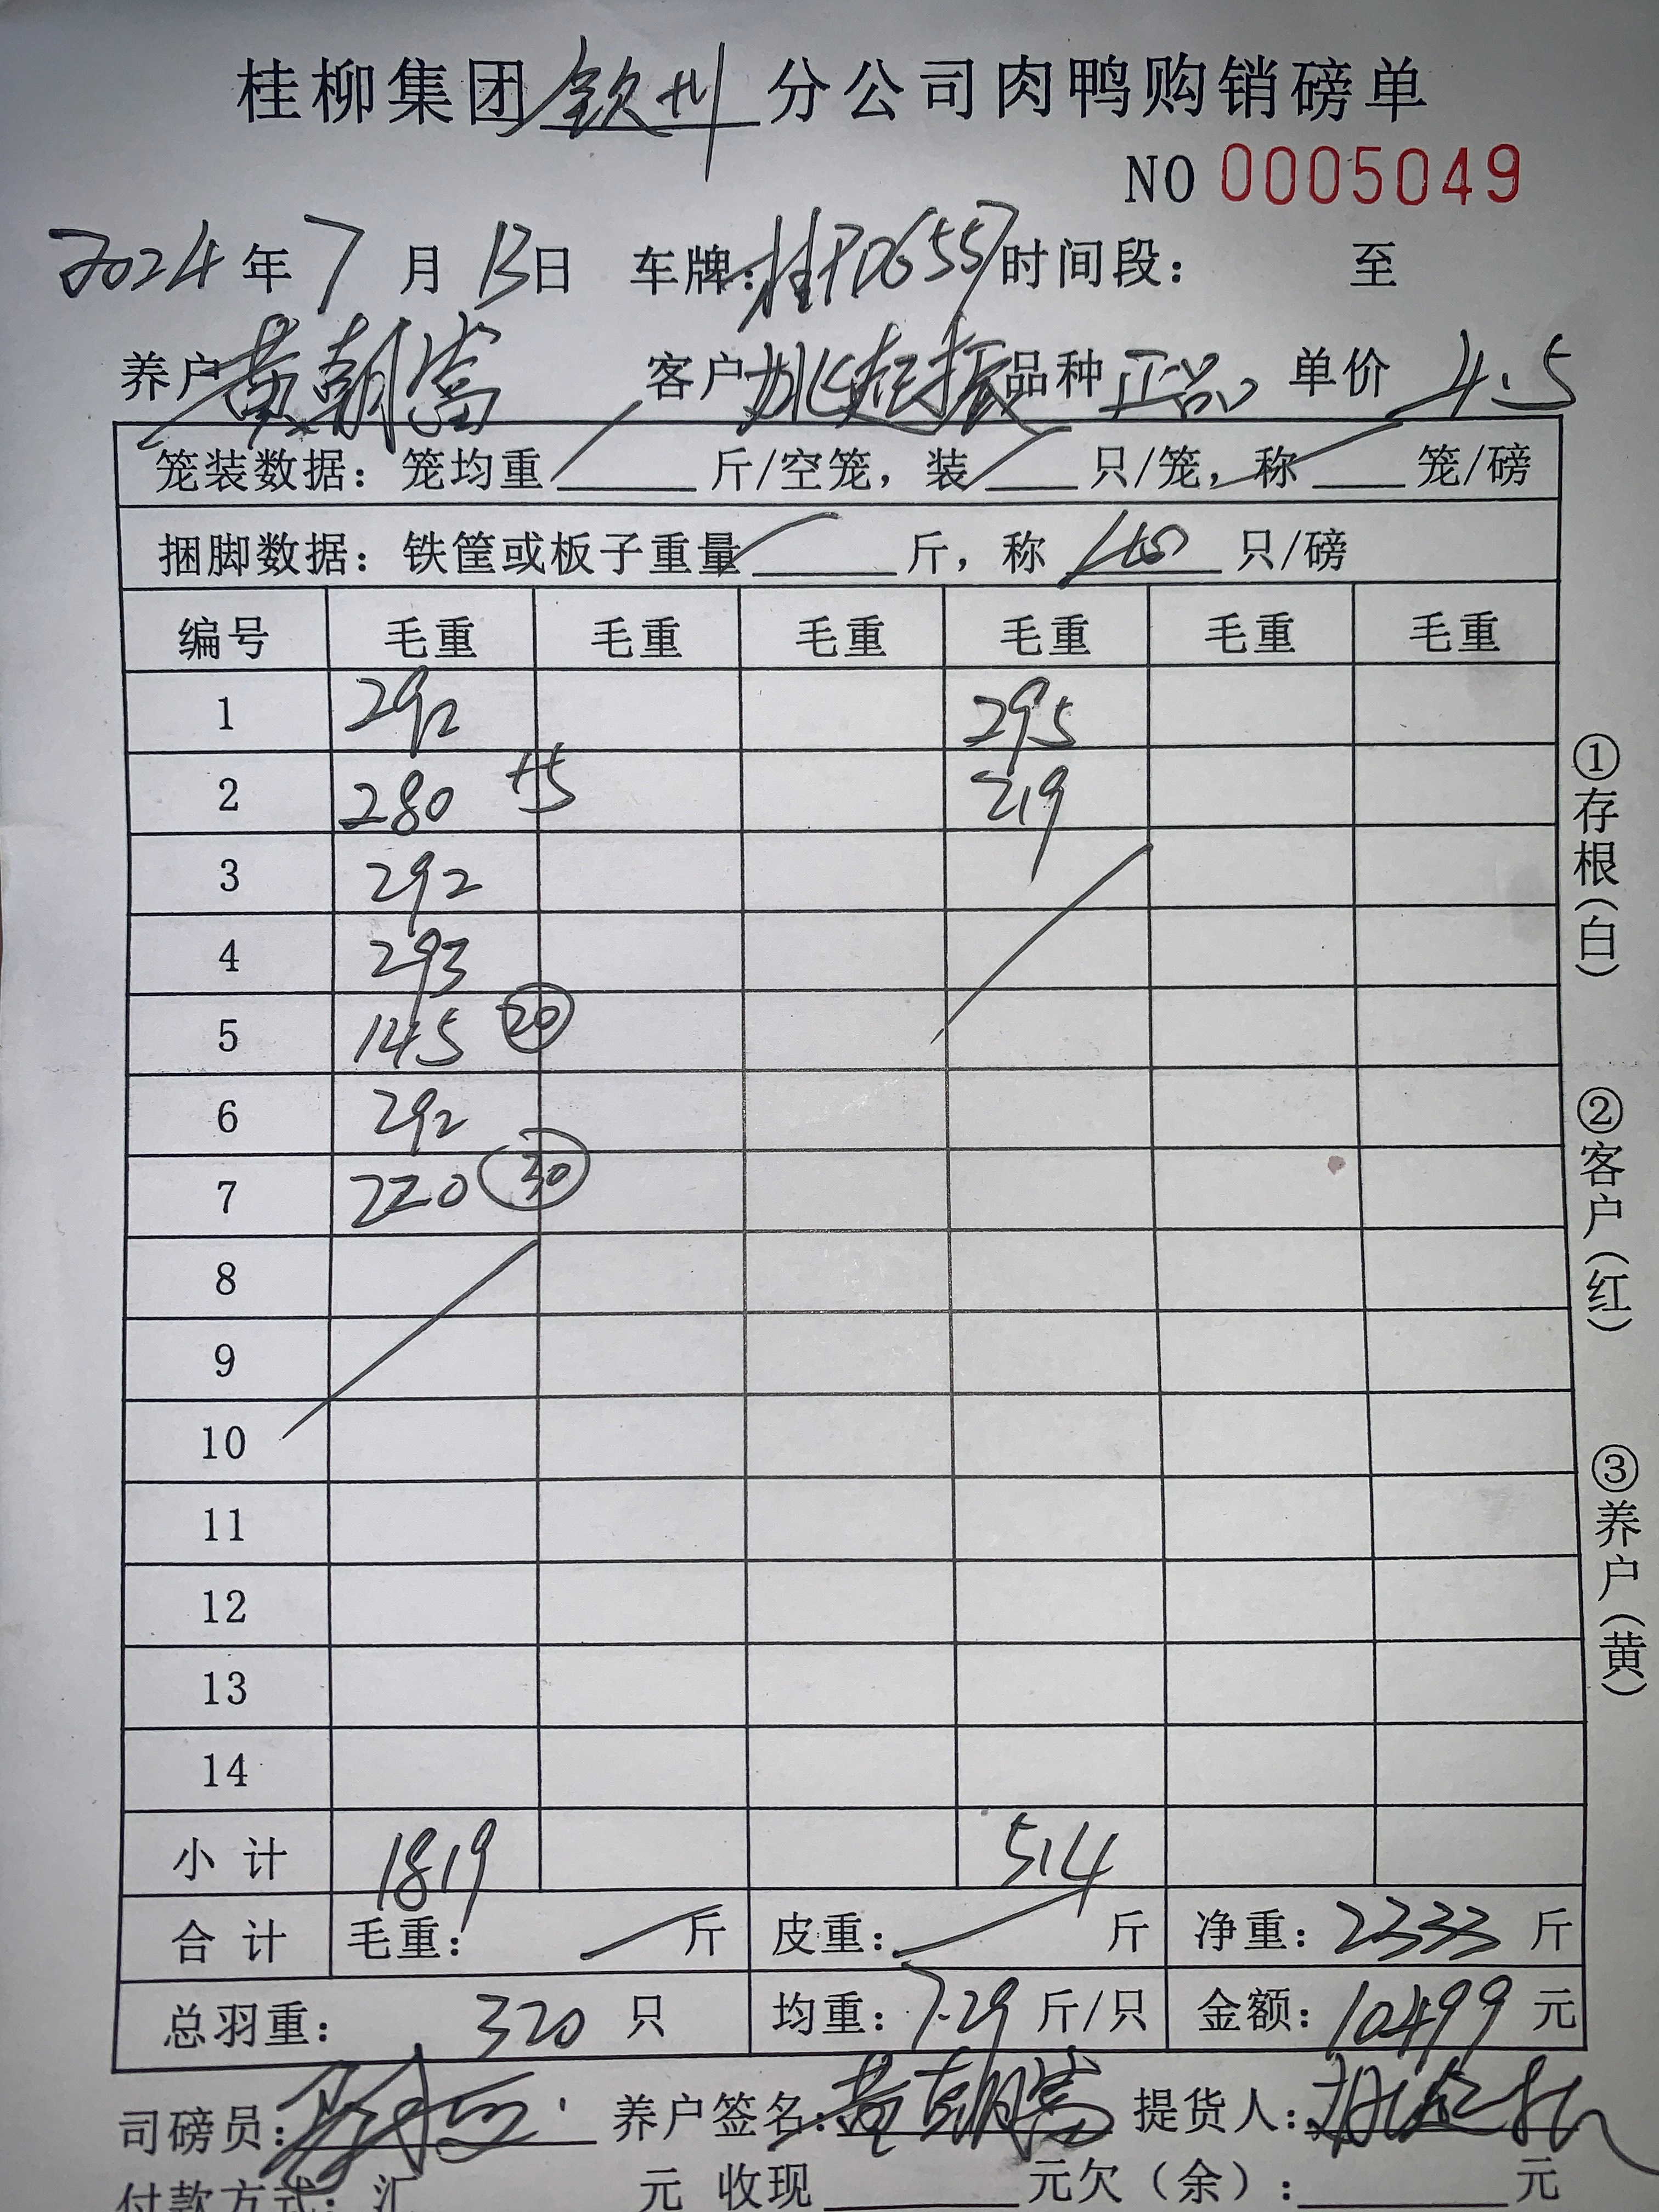 桂柳集团钦州分公司肉鸭购销磅单
NO 0005049
2024年7月13日 车牌:桂PD6557时间段: 至
养户黄朝富 客户姚廷振品种正品 单价4.5
笼装数据:笼均重 斤/空笼,装 只/笼,称 笼/磅
捆脚数据:铁筐或板子重量 斤,称 40 只/磅
编号 毛重 毛重 毛重 毛重 毛重 毛重
1 292 295
2 280 +5 219
3 292
4 293
5 145 20
6 292
7 220 30
8
9
10
11
12
13
14
小计 1819 514
合计 毛重: 斤 皮重: 斤 净重:2333斤
总羽重: 320只 均重:7.29斤/只 金额:10499元
司磅员: 养户签名:黄朝富 提货人:
付款方式:汇 元 收现 元欠(余): 元
①存根(白)
②客户(红)
③养户(黄)